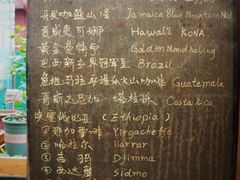 牙买加蓝山1号 Jamaica Blue Mountain No1
夏威夷可娜 Hawaii KONA
黄金曼特宁 Golden Mandheling
巴西 Brazil
危地马拉 火山 Guatemala
哥斯达尼加 Costa Rica
埃塞俄比亚 (Ethiopia)
① 耶加雪啡 Yirgacheffe
② 哈拉尔 Harrar
③ 吉玛 Djimma
④ 西达摩 Sidmo